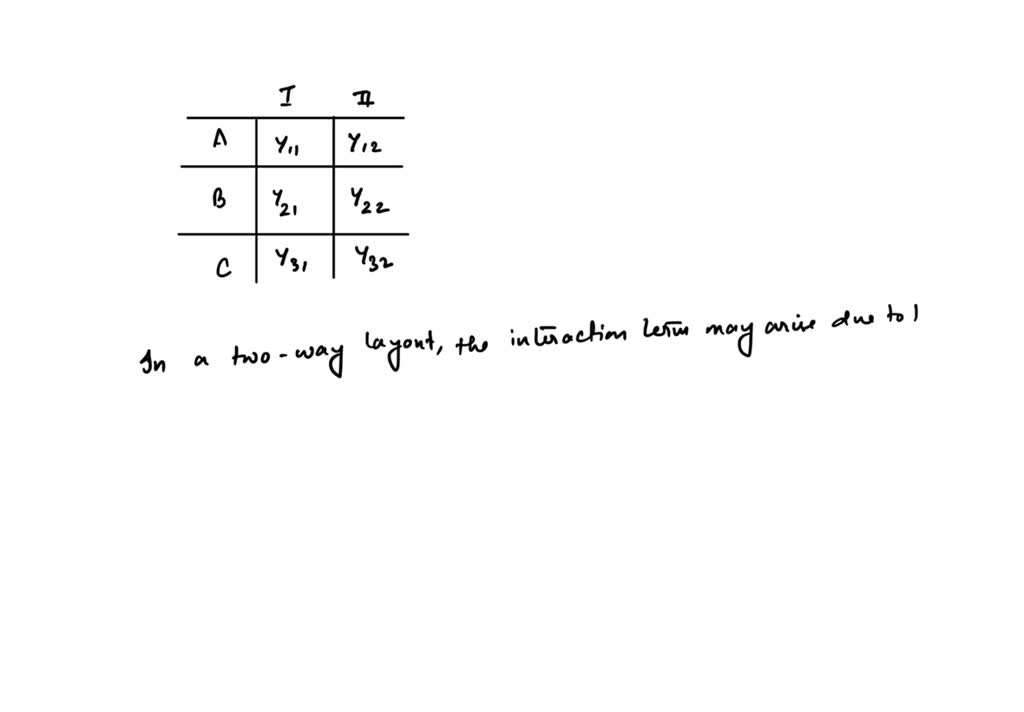 I II
A Y11 Y12
B Y21 Y22
C Y31 Y32
In a two-way layout, the interaction term may arise due to